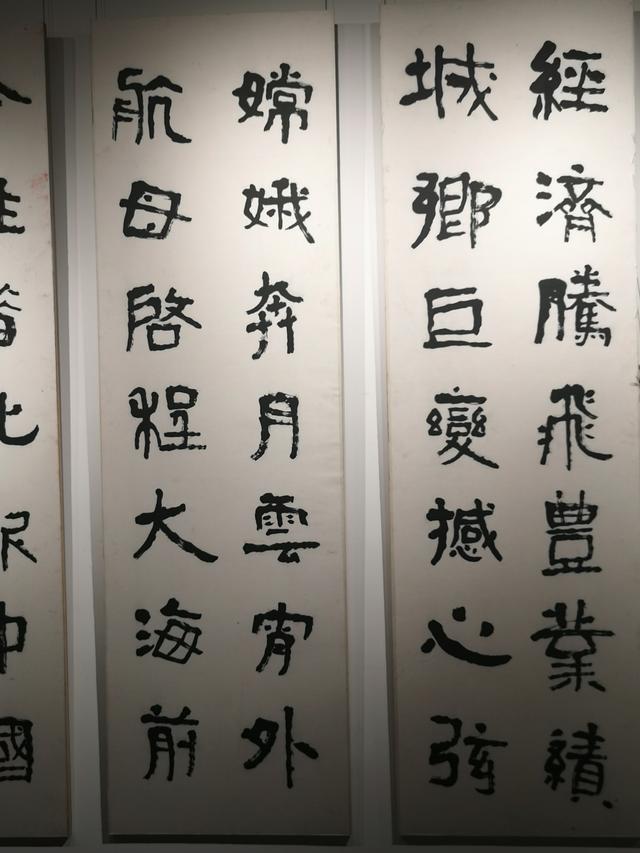 經濟騰飛豊業績
城鄉巨變撼心弦
嫦娥奔月雲宵外
航母啓程大海前
中國